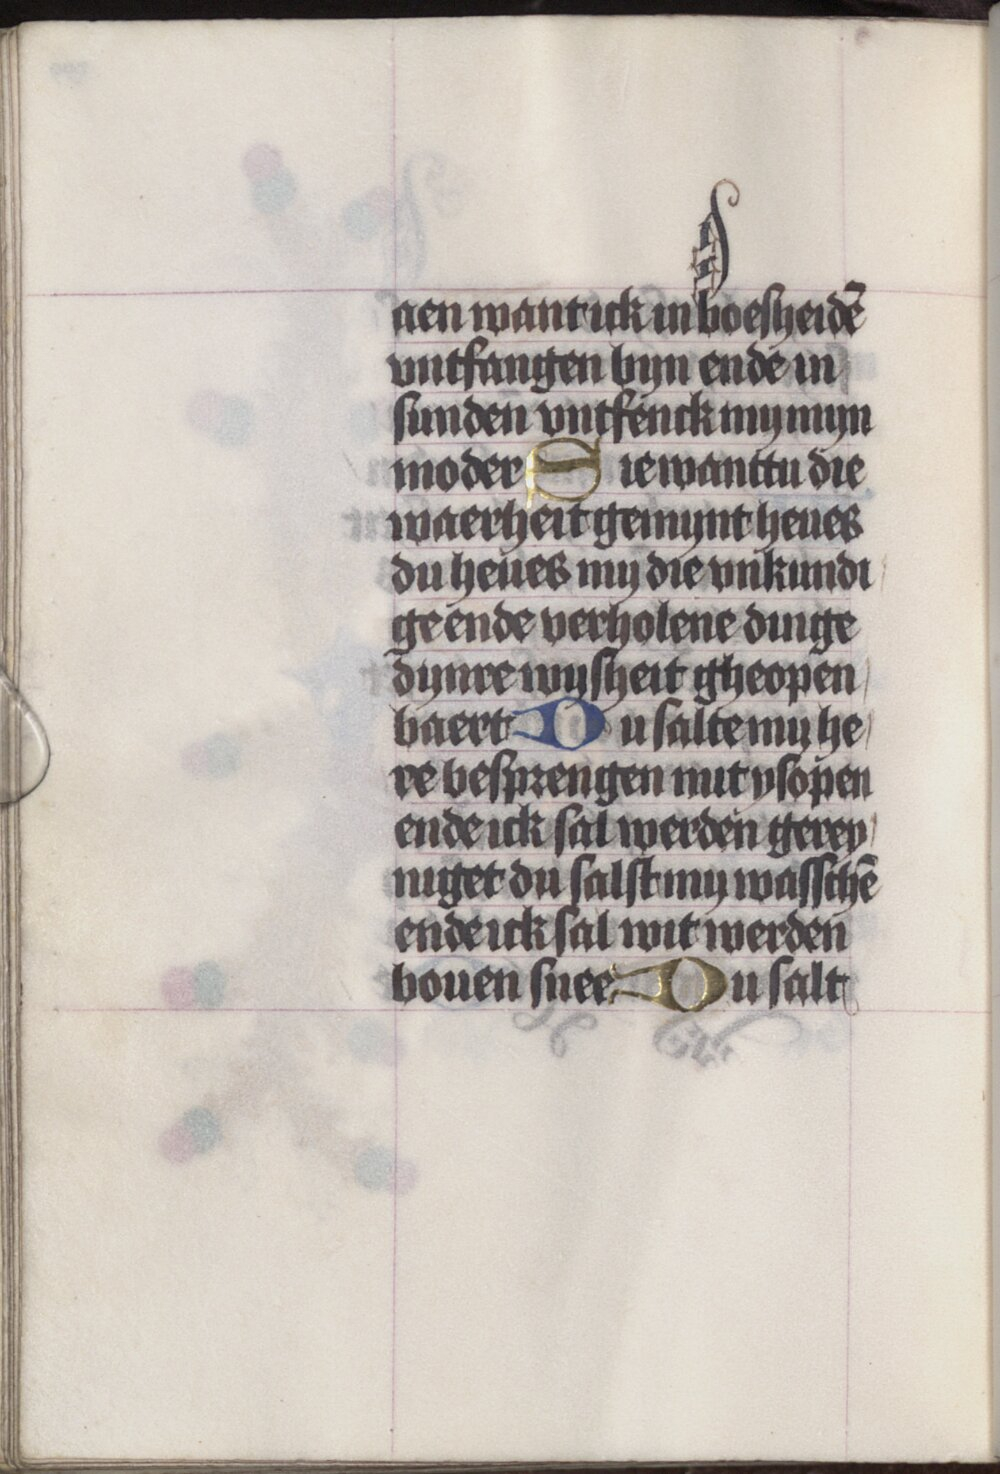 aen want ick in boesheidē
vntfangen byn ende in
sunden vntfenck my myn
moder Sie wanttu die
waerheit gemynt heues
du heues my die vnkundi
ge ende verholene dinge
dynre wysheit gheopen
baert Du salte my he
re besprengen mit ysopen
ende ick sal werden gerey
niget du salst my wasschē
ende ick sal wit werden
bouen snee Du salt